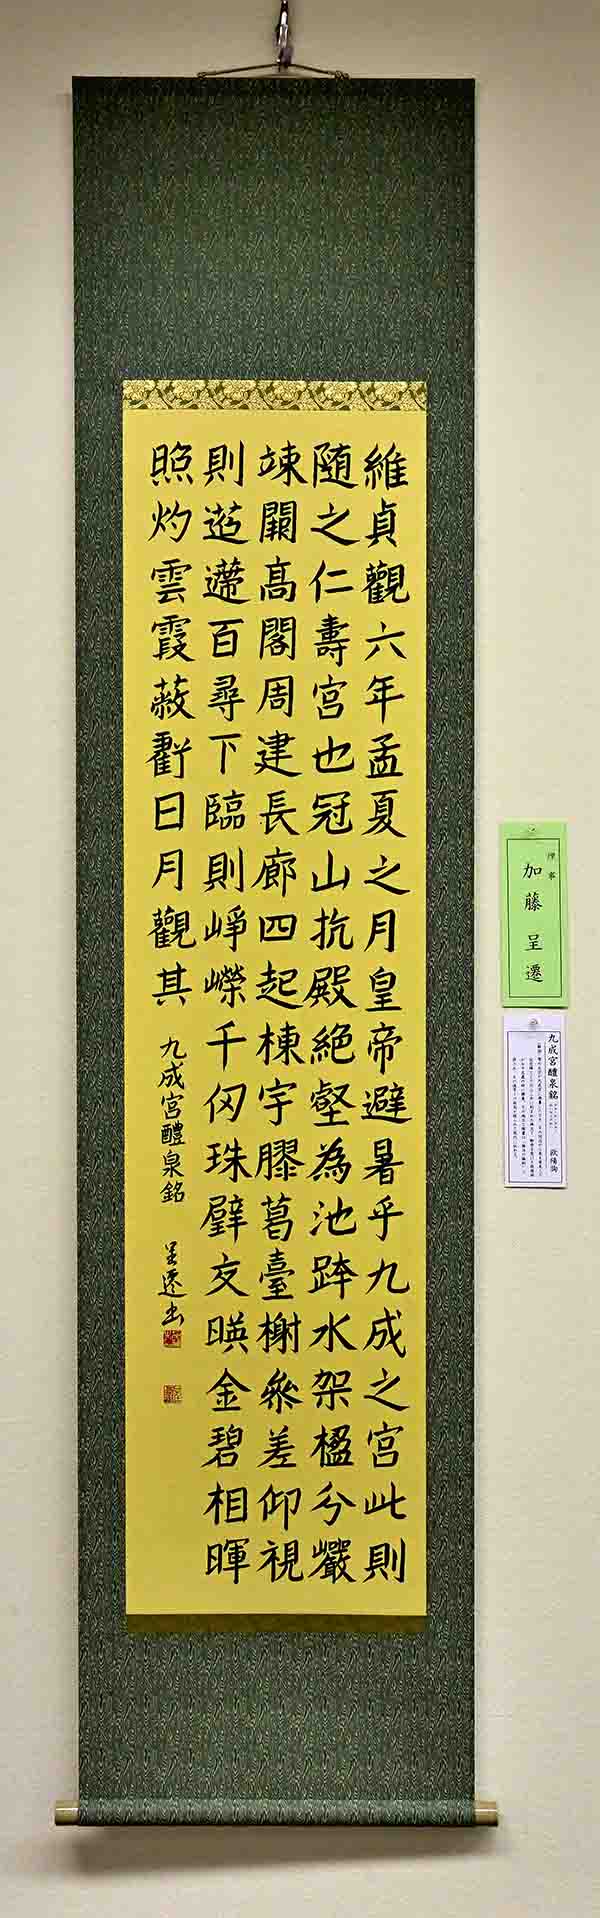 維貞觀六年孟夏之月皇帝避暑乎九成之宮此則
随之仁壽宮也冠山抗殿絶壑為池跨水架楹分巖
竦闕高閣周建長廊四起棟宇膠葛臺榭參差仰視
則迢遰百尋下臨則崢嶸千仞珠璧交暎金碧相暉
照灼雲霞蔽虧日月觀其
九成宮醴泉銘
呈遷書
理事
加藤呈遷
九成宮醴泉銘
欧陽詢